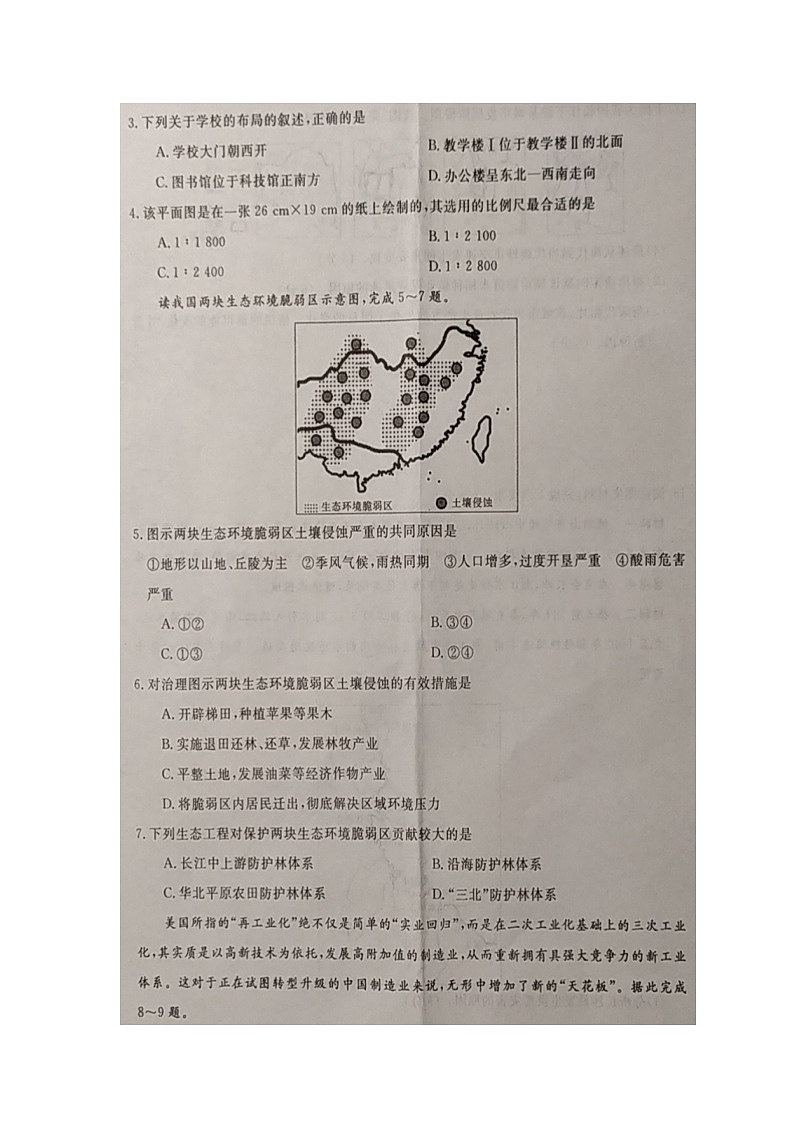 3.下列关于学校的布局的叙述,正确的是
A.学校大门朝西开
B.教学楼Ⅰ位于教学楼Ⅱ的北面
C.图书馆位于科技馆正南方
D.办公楼呈东北—西南走向
4.该平面图是在一张 26 cm×19 cm 的纸上绘制的,其选用的比例尺最合适的是
A.1∶1 800
B.1∶2 100
C.1∶2 400
D.1∶2 800
读我国两块生态环境脆弱区示意图,完成 5～7 题。
生态环境脆弱区
土壤侵蚀
5.图示两块生态环境脆弱区土壤侵蚀严重的共同原因是
①地形以山地、丘陵为主 ②季风气候,雨热同期 ③人口增多,过度开垦严重 ④酸雨危害
严重
A.①②
B.③④
C.①③
D.②④
6.对治理图示两块生态环境脆弱区土壤侵蚀的有效措施是
A.开辟梯田,种植苹果等果木
B.实施退田还林、还草,发展林牧产业
C.平整土地,发展油菜等经济作物产业
D.将脆弱区内居民迁出,彻底解决区域环境压力
7.下列生态工程对保护两块生态环境脆弱区贡献较大的是
A.长江中上游防护林体系
B.沿海防护林体系
C.华北平原农田防护林体系
D.“三北”防护林体系
美国所指的“再工业化”绝不仅是简单的“实业回归”,而是在二次工业化基础上的三次工业
化,其实质是以高新技术为依托,发展高附加值的制造业,从而重新拥有具强大竞争力的新工业
体系。这对于正在试图转型升级的中国制造业来说,无形中增加了新的“天花板”。据此完成
8～9 题。